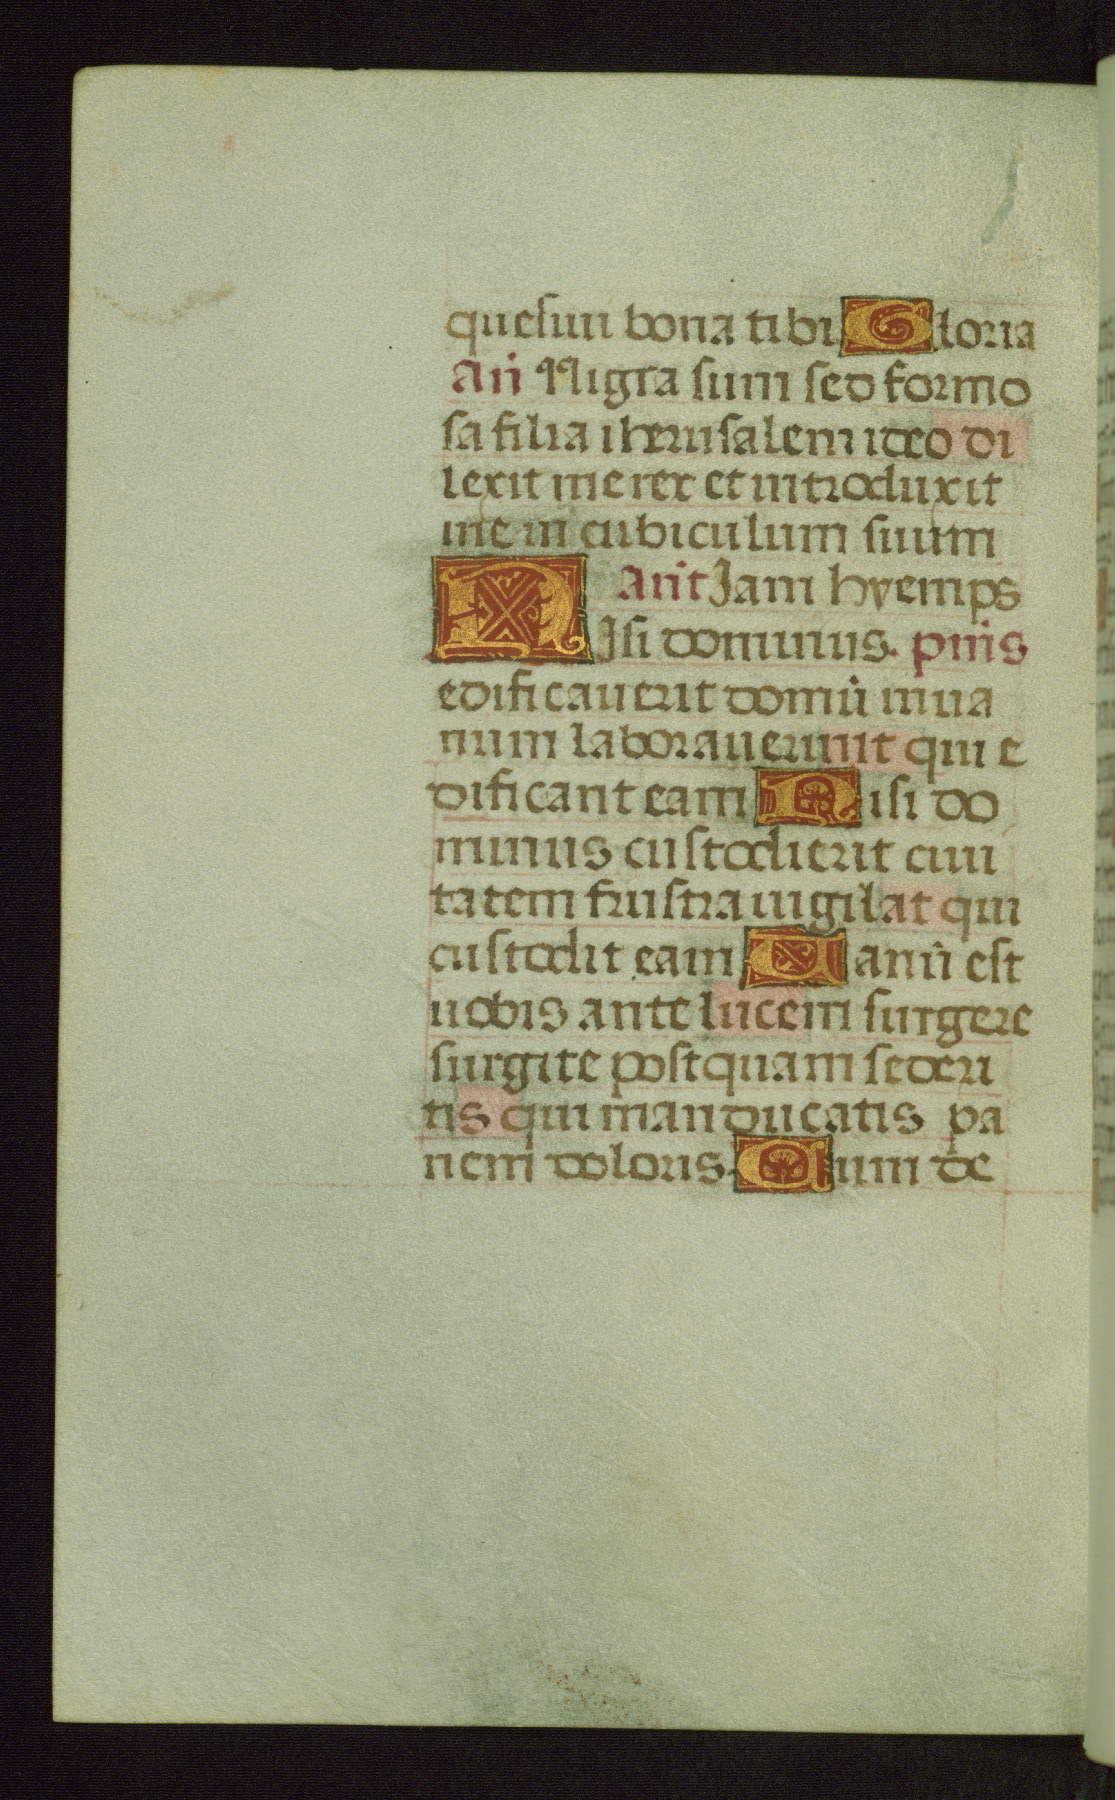 quesiui bona tibi Gloria
An̄ Nigra sum sed formo
sa filia iherusalem ideo di
lexit me rex et introduxit
me in cubiculum suum
Ant Jam hyemps
NIsi dominus. pm̄s
edificauerit domū in ua
num laborauerunt qui e
dificant eam Nisi do
minus custodierit ciui
tatem frustra uigilat qui
custodit eam Uanū est
uobis ante lucem surgere
surgite postquam sederi
tis qui manducatis pa
nem doloris. Cum de